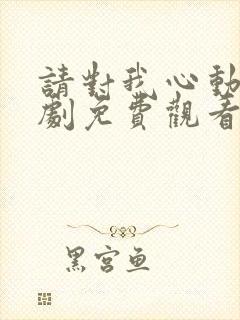 請對我心動
劇免費觀看
黑宮魚